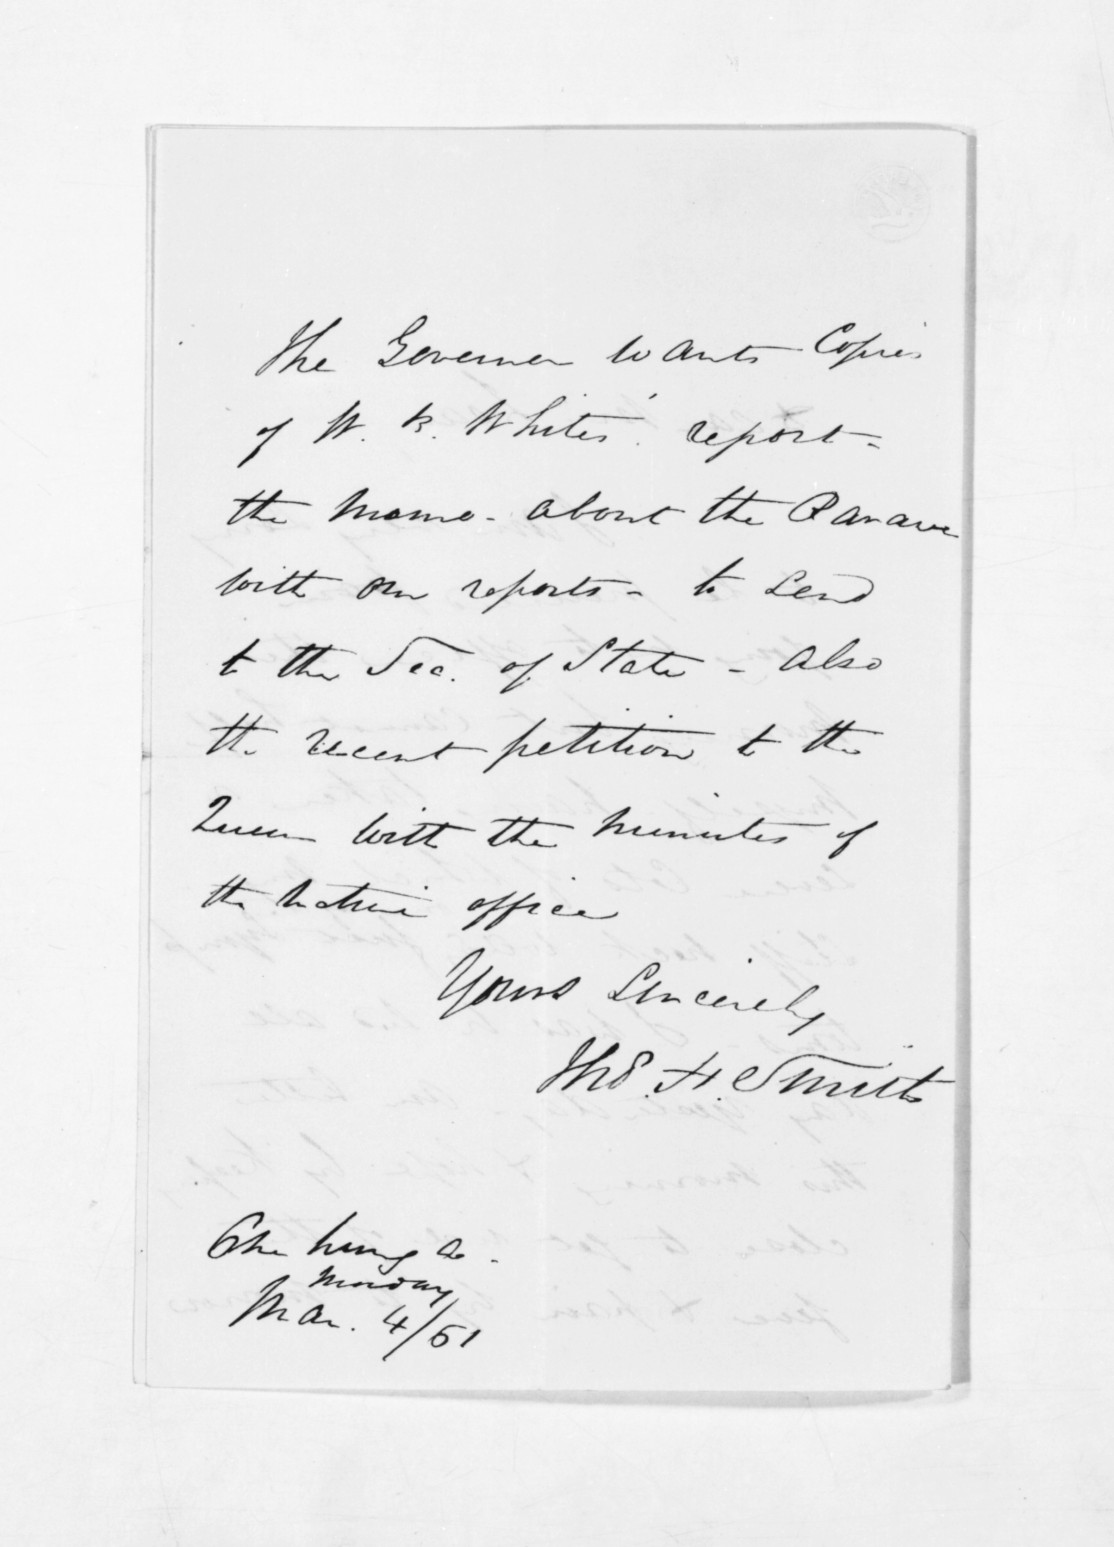 The Governor wants Copies
of W. B. White's report -
the memo - about the Parawa
with our reports - to send
to the Sec. of State - also
the recent petition to the
Queen with the minutes of
the Native office
Yours Sincerely
Thos. H. Smith
Monday
Mar. 4/61